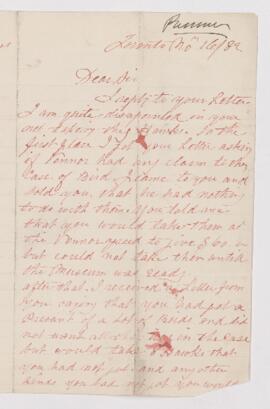 Pennor
Toronto Nov 16/82
Dear Sir
I reply to your Letter
I am quite disapointed in your
not takeing the Hawks. In the
first place I got your Letter asking
if Pennor had any claim to the
Case of Birds, I came to you and
told you, that he had nothing
to do with them. You told me
that you would take them at
the Pennor agreed to give $60.
but could not take them untill
the Museum was ready
after that. I received a Letter from
you saying that you had got a
Present of a lot of Birds and did
not want all the in the Case
but would take Hawks that
you had not got and any other
kinds you had not got you would